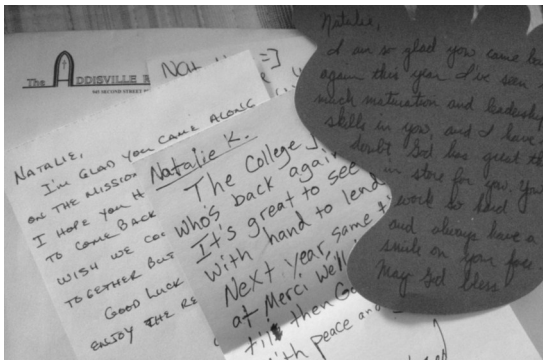 The ADDISVILLE
Nat
=]
NATALIE,
I'M GLAD YOU CAME ALONG
ON THE MISSION
I HOPE YOU H
TO COME BACK
WISH WE CO
TOGETHER BUT
GOOD LUCK
ENJOY THE RE
Natalie K.
The College J
who's back again
It's great to see
With hand to lend
Next year, same t
at Merci Well
till then Go
with peace and
Natalie,
I am so glad you came ba
again this year. I've seen
much maturation and leadership
skills in you, and I have
doubt God has great th
in store for you. You
work so hard
and always have a
smile on your face.
May God bless